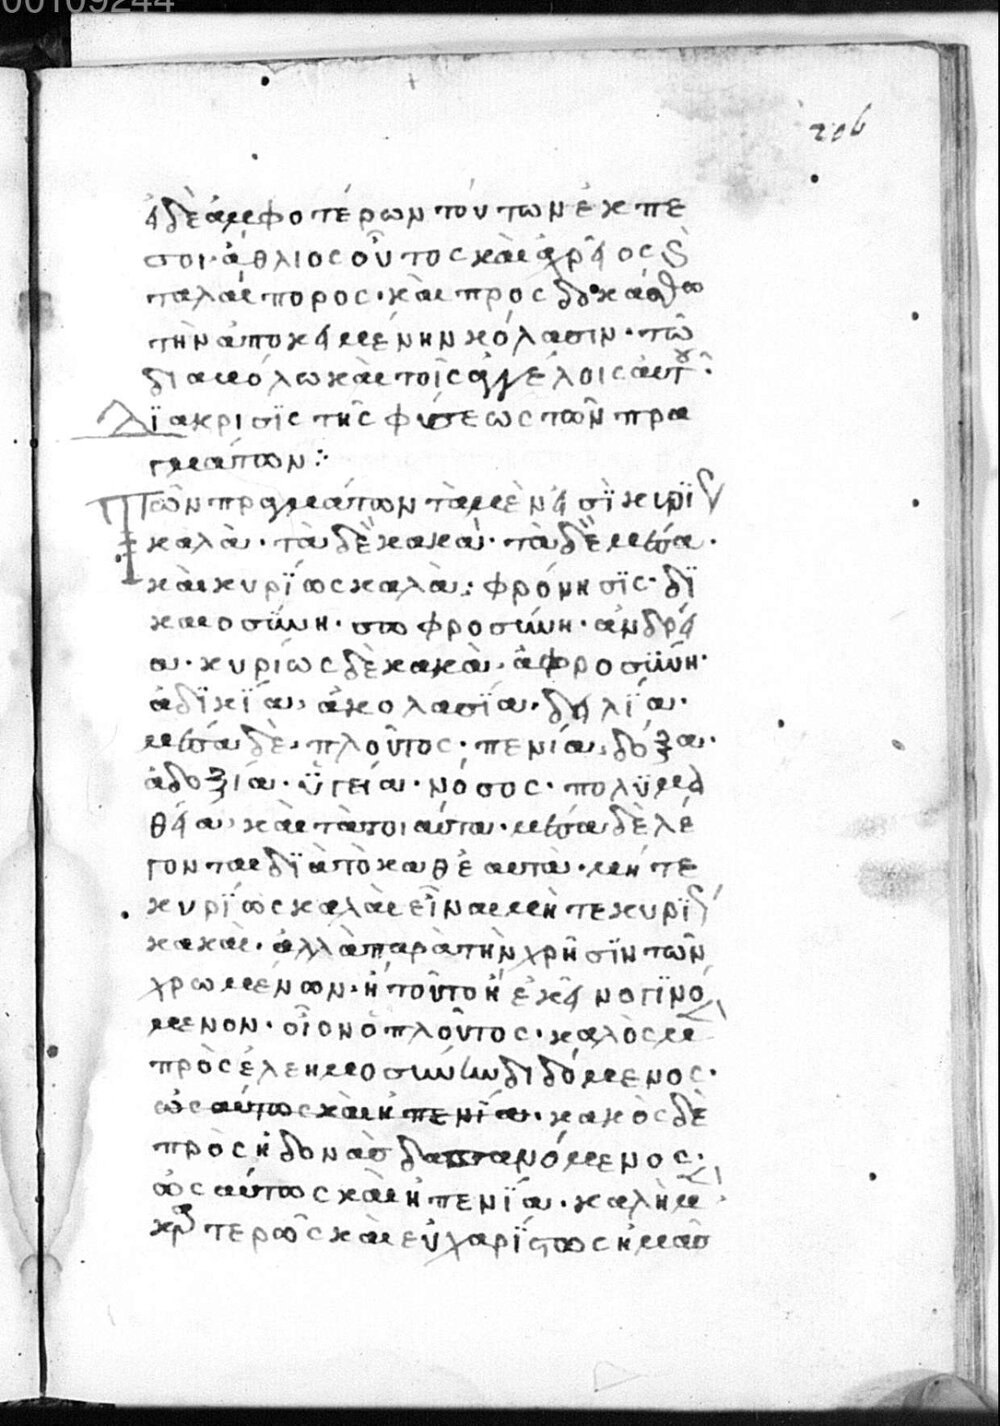 00109244
206
εἰ δὲ ἀμφοτέρων τούτων ἐκπέ
σοι· ἄθλιος οὗτος καὶ ἀχρεῖος καὶ
ταλαίπορος· καὶ προσδοκάσθω
τὴν ἀποκειμένην κόλασιν· τῶ
διαβόλω καὶ τοῖς ἀγγέλοις αὐτοῦ·
Δϊάκρισϊς τῆς φύσεως τῶν πρα
γμάτων:·
Τῶν πραγμάτων τὰ μὲν εἰσϊ κυρΐως
καλὰ· τὰ δὲ κακὰ· τὰ δὲ μέσα·
καὶ κυρΐως καλὰ: φρόνησϊς· δϊ
καιοσΰνη· σωφροσύνη· ἀνδρεί
α· κυρίως δὲ κακὰ· ἀφροσΰνη·
ἀδϊκΐα· ἀκολασΐα· δειλΐα·
μέσα δὲ· πλοῦτος· πενία· δόξα·
ἀδοξία· ὑγεία· νόσος· πολϋμα
θεία· καὶ τὰ τοιαῦτα· μέσα δὲ λέ
γονται δϊὰ τὸ καθἑαυτὰ· μήτε
κυρΐως καλὰ εἶναι μήτε κυρΐως
κακὰ· ἀλλὰ παρὰ τὴν χρῆσϊν τῶν
χρωμένων· ἢ τοῦτο ἢ ἐκεῖνο γϊνό
μενον· οἷον ὁ πλοῦτος· καλὸς μὲν
πρὸς ἐλεημοσύνην διδόμενος·
ὡσαύτως καὶ ἡ πενΐα· κακὸς δὲ
πρὸς ἡδονὰς δαπανόμενος·
ὡσαύτως καὶ ἡ πενΐα· καλὴ μὲν
καρτερῶς καὶ εὐχαρΐστως ἡμᾶς